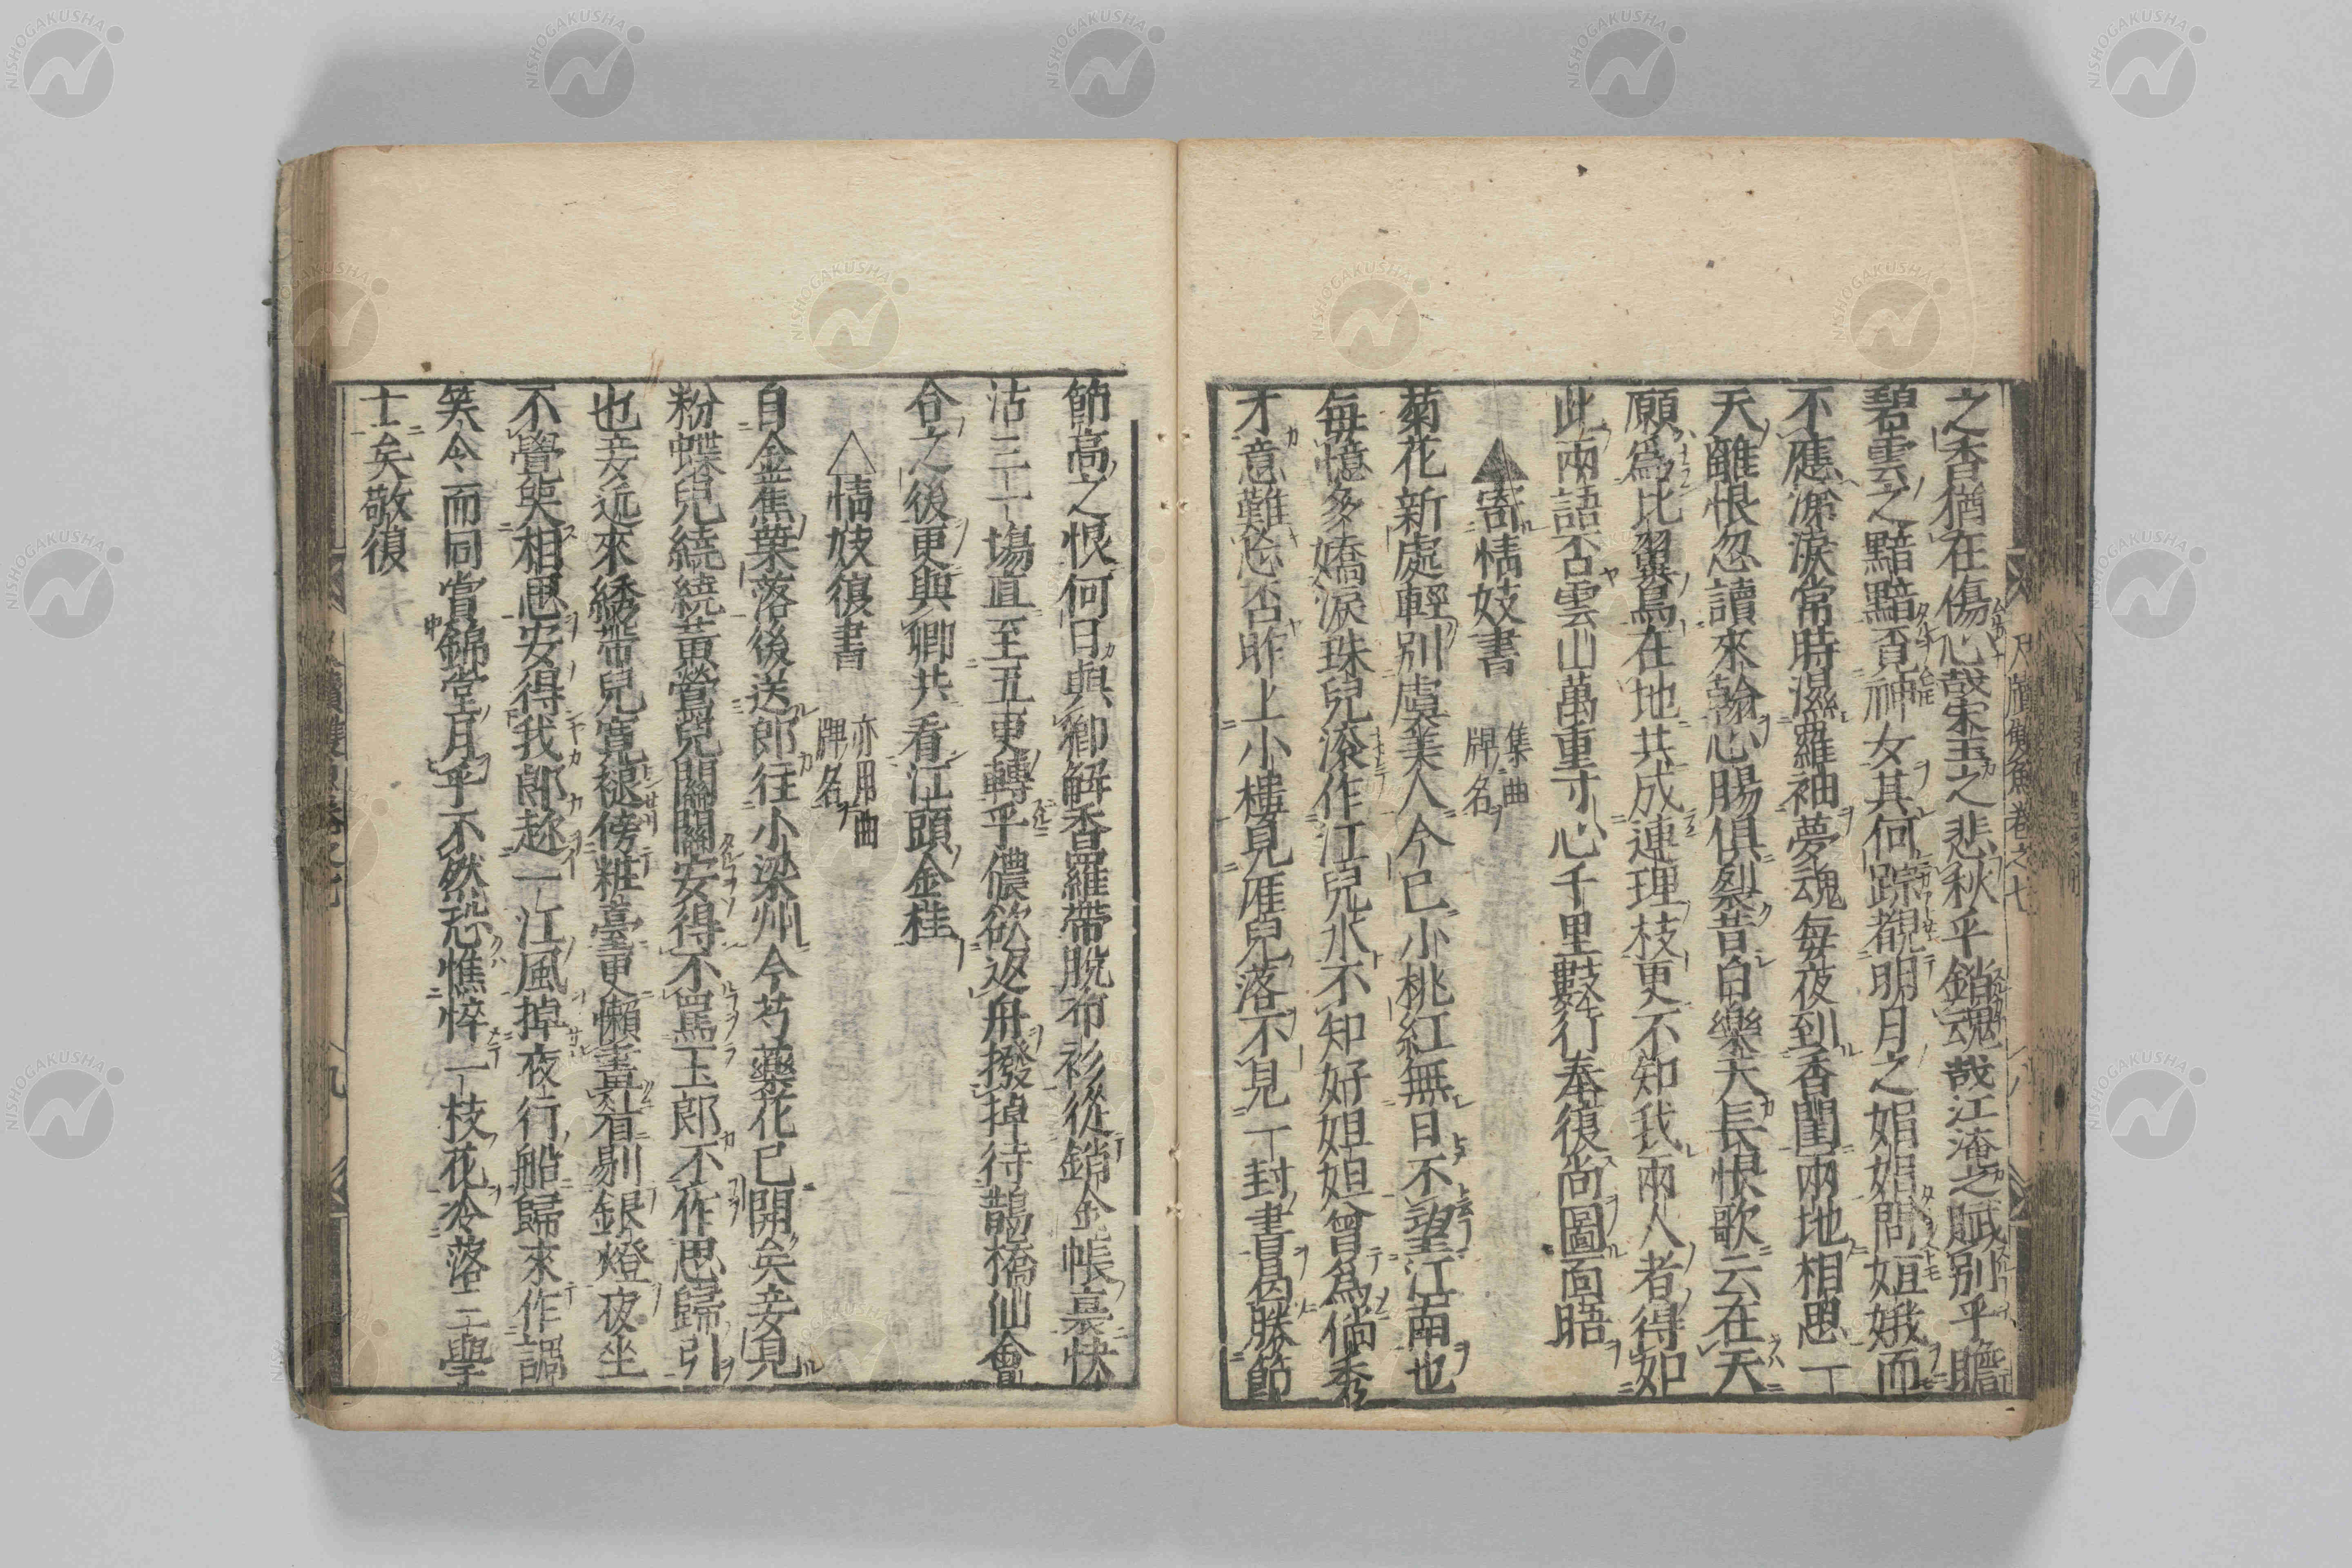 之香猶在傷心哉宋玉之悲秋乎銷魂哉江淹之賦別乎瞻
碧雲之黯黯覓神女其何踪覩明月之娟娟問姮娥而
不應涕淚常時濕羅袖夢魂每夜到香閨兩地相思一
天離恨忽讀來翰心腸俱裂昔白樂天長恨歌云在天
願爲比翼鳥在地共成連理枝更不知我兩人者得如
此兩語否雲山萬重寸心千里數行奉復尚圖面晤
▲寄情妓書 集曲牌名
菊花新處輕別虞美人今已小桃紅無日不望江南也
每憶多嬌淚珠兒滾作江兒水不知好姐姐曾爲倘秀
才意難忘否昨上小樓見雁兒落不見一封書曷勝節
節高之恨何日與卿解香羅帶脫布衫從銷金帳裏快
活三十塲直至五更轉乎儂欲返舟撥掉待鵲橋仙會
合之後更與卿共看江頭金桂
△情妓復書 亦用曲牌名
自金蕉葉落後送郎往小梁州今芍藥花已開矣妾見
粉蝶兒繞繞黃鶯兒關關安得不罵玉郎不作思歸引
也妾近來綉帶兒寬褪傍粧臺更懶畫眉剔銀燈夜坐
不覺哭相思安得我郎趂一江風掉夜行船歸來作調
笑令而同賞錦堂月乎不然恐憔悴一枝花冷落三學
士矣敬復
尺牘雙魚卷之七
八
九
NISHOGAKUSHA